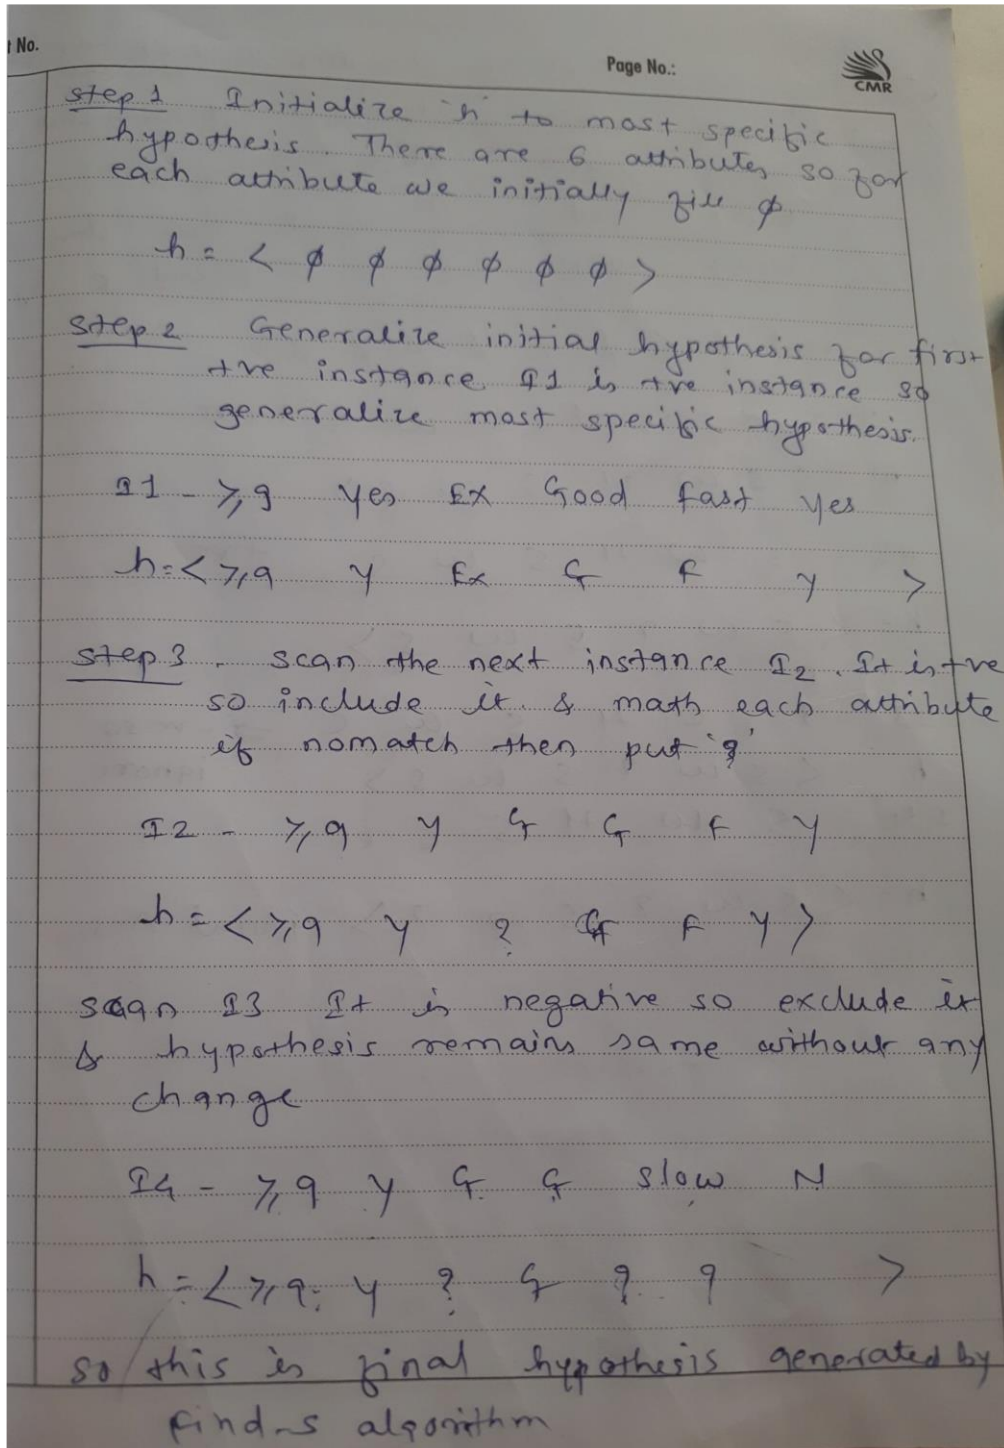 t No.
Page No.:
CMR
step 1 Initialize 'h' to most specific
hypothesis. There are 6 attributes, so for
each attribute we initially fill φ
h = < φ φ φ φ φ φ >
Step 2 Generalize initial hypothesis for first
+ve instance. I1 is +ve instance so
generalize most specific hypothesis.
I1 - ≥9 Yes Ex Good fast yes
h = < ≥9 Y Ex G F Y >
Step 3. Scan the next instance I2. It is +ve
so include it & math each attribute
if nomatch then put '?'
I2 - ≥9 Y G G F Y
h = < ≥9 Y ? G F Y >
Scan I3 It is negative so exclude it
& hypothesis remains same without any
change
I4 - ≥9 Y G G slow N
h = < ≥9 Y ? G ? ? >
so this is final hypothesis generated by
find-s algorithm